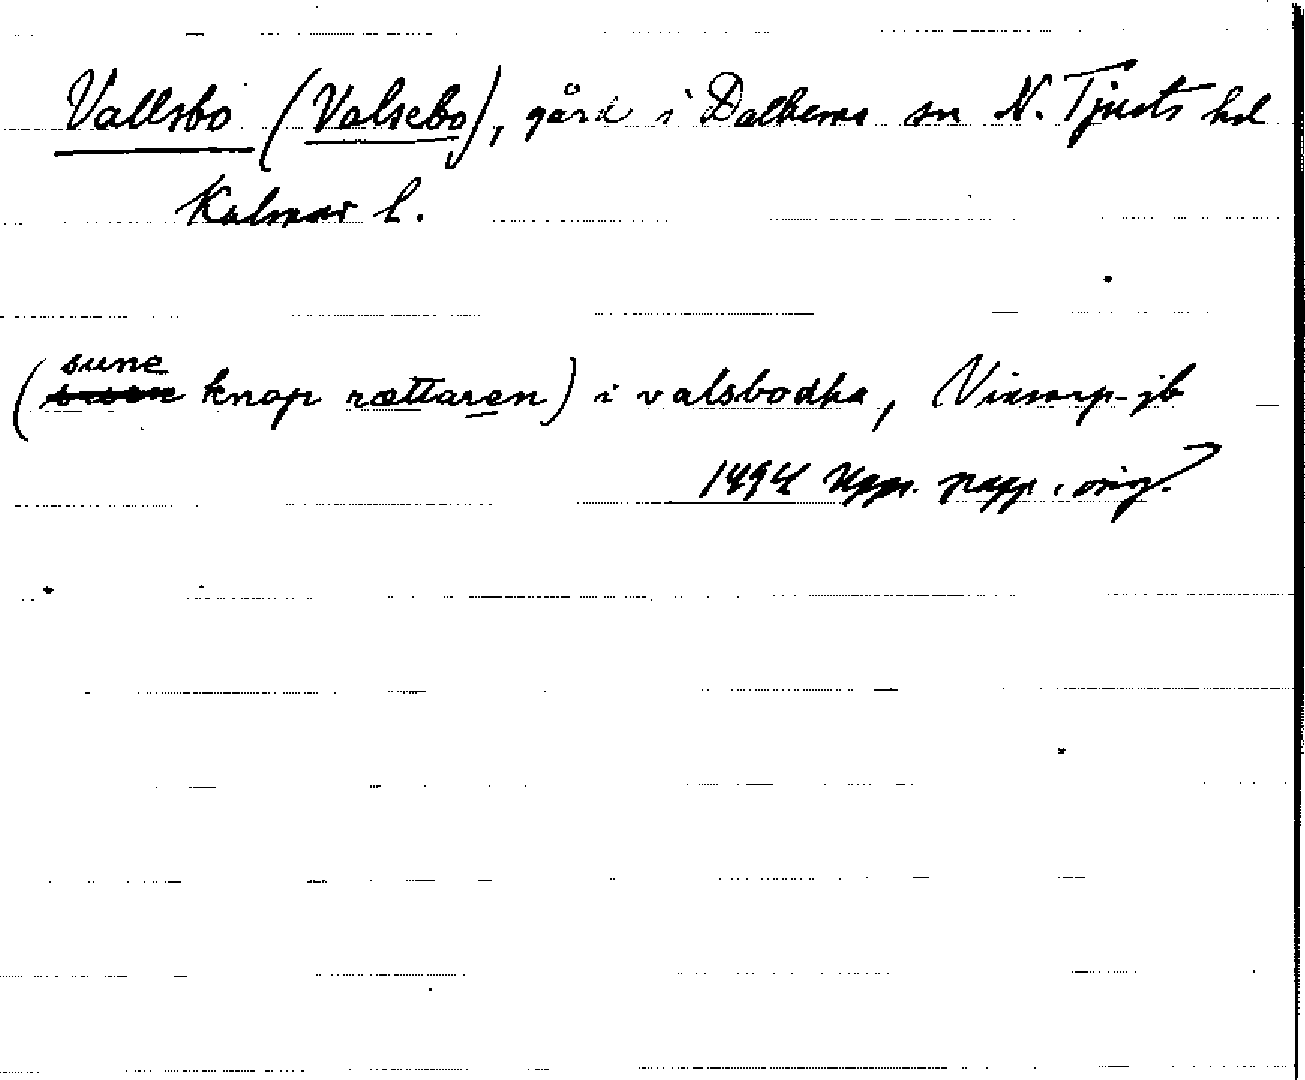 Vallsbo (Valsebo), gård i Dalhems sn N. Tjusts hd
Kalmar l.
sune
(knap rættaren) i valsbodha, Vinorp-jb
1494 Upps. papp. orig.